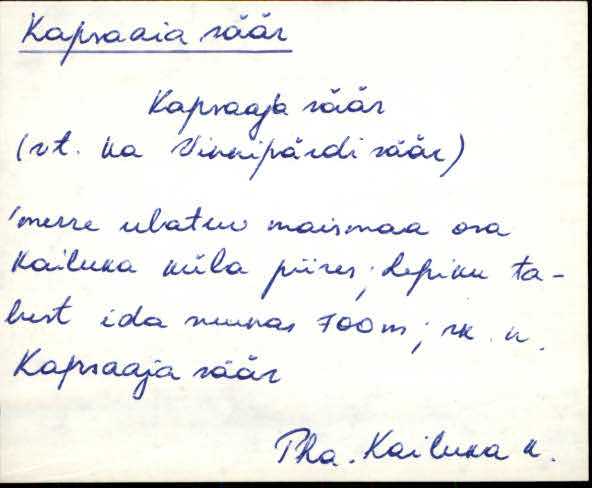 Kapsaaia säär
Kapsaaja säär
(vt. ka Vinnipärdi säär)
'merre ulatuv maismaa osa
Kailuka küla piires; Lepiku ta-
lust ida suunas 700 m; rk. n.
Kapsaaja säär
Pha. Kailuka k.